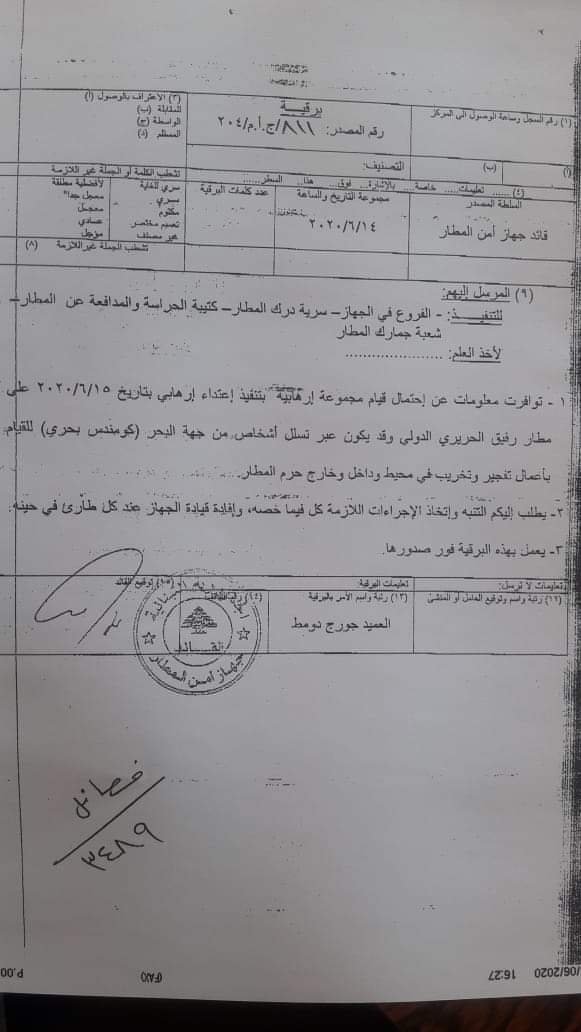 (١) رقم السجل وساعة الوصول الى المركز
برقيـــة
رقم المصدر: ٨١١/ج.أ.م/٢٠٤
(٣) الأعتراف بالوصول (أ)
المقابلة (ب)
الواسطة (ج)
المستلم (د)
(أ)
(ب)
التصنيف:
تشطب الكلمة أو الجملة غير اللازمة
(٤) ...... تعليمات...... خاصة..... بالإشارة... فوق... هذا... السطر......
السلطة المصدر
مجموعة التاريخ والساعة
عدد كلمات البرقية
سري للغاية
لأفضلية مطلقة
سري
معجل جدا"
مكتوم
معجل
تعميم مختصر
عادي
غير مصنف
مؤجل
قائد جهاز أمن المطار
٢٠٢٠/٦/١٤
تشطب الجملة غير اللازمة
(٨)
(٩) المرسل إليهم:
للتنفيـــذ: - الفروع في الجهاز– سرية درك المطار– كتيبة الحراسة والمدافعة عن المطار–
شعبة جمارك المطار
لأخذ العلم: .....................
١ - توافرت معلومات عن إحتمال قيام مجموعة إرهابية بتنفيذ إعتداء إرهابي بتاريخ ٢٠٢٠/٦/١٥ على
مطار رفيق الحريري الدولي وقد يكون عبر تسلل أشخاص من جهة البحر (كومندس بحري) للقيام
بأعمال تفجير وتخريب في محيط وداخل وخارج حرم المطار.
٢- يطلب إليكم التنبه وإتخاذ الإجراءات اللازمة كل فيما خصه، وإفادة قيادة الجهاز عند كل طارئ في حينه.
٣- يعمل بهذه البرقية فور صدورها.
تعليمات لا ترسل:
تعليمات البرقية:
(١٢) رتبة واسم وتوقيع العامل أو المنشئ
(١٣) رتبة واسم الأمر بالبرقية
(١٤)
(١٥) توقيع القائد
العميد جورج دومط
القائد
جهاز أمن المطار
فصائل
٣٤٨٩
/06/2020 16:27 (FAX) P.00